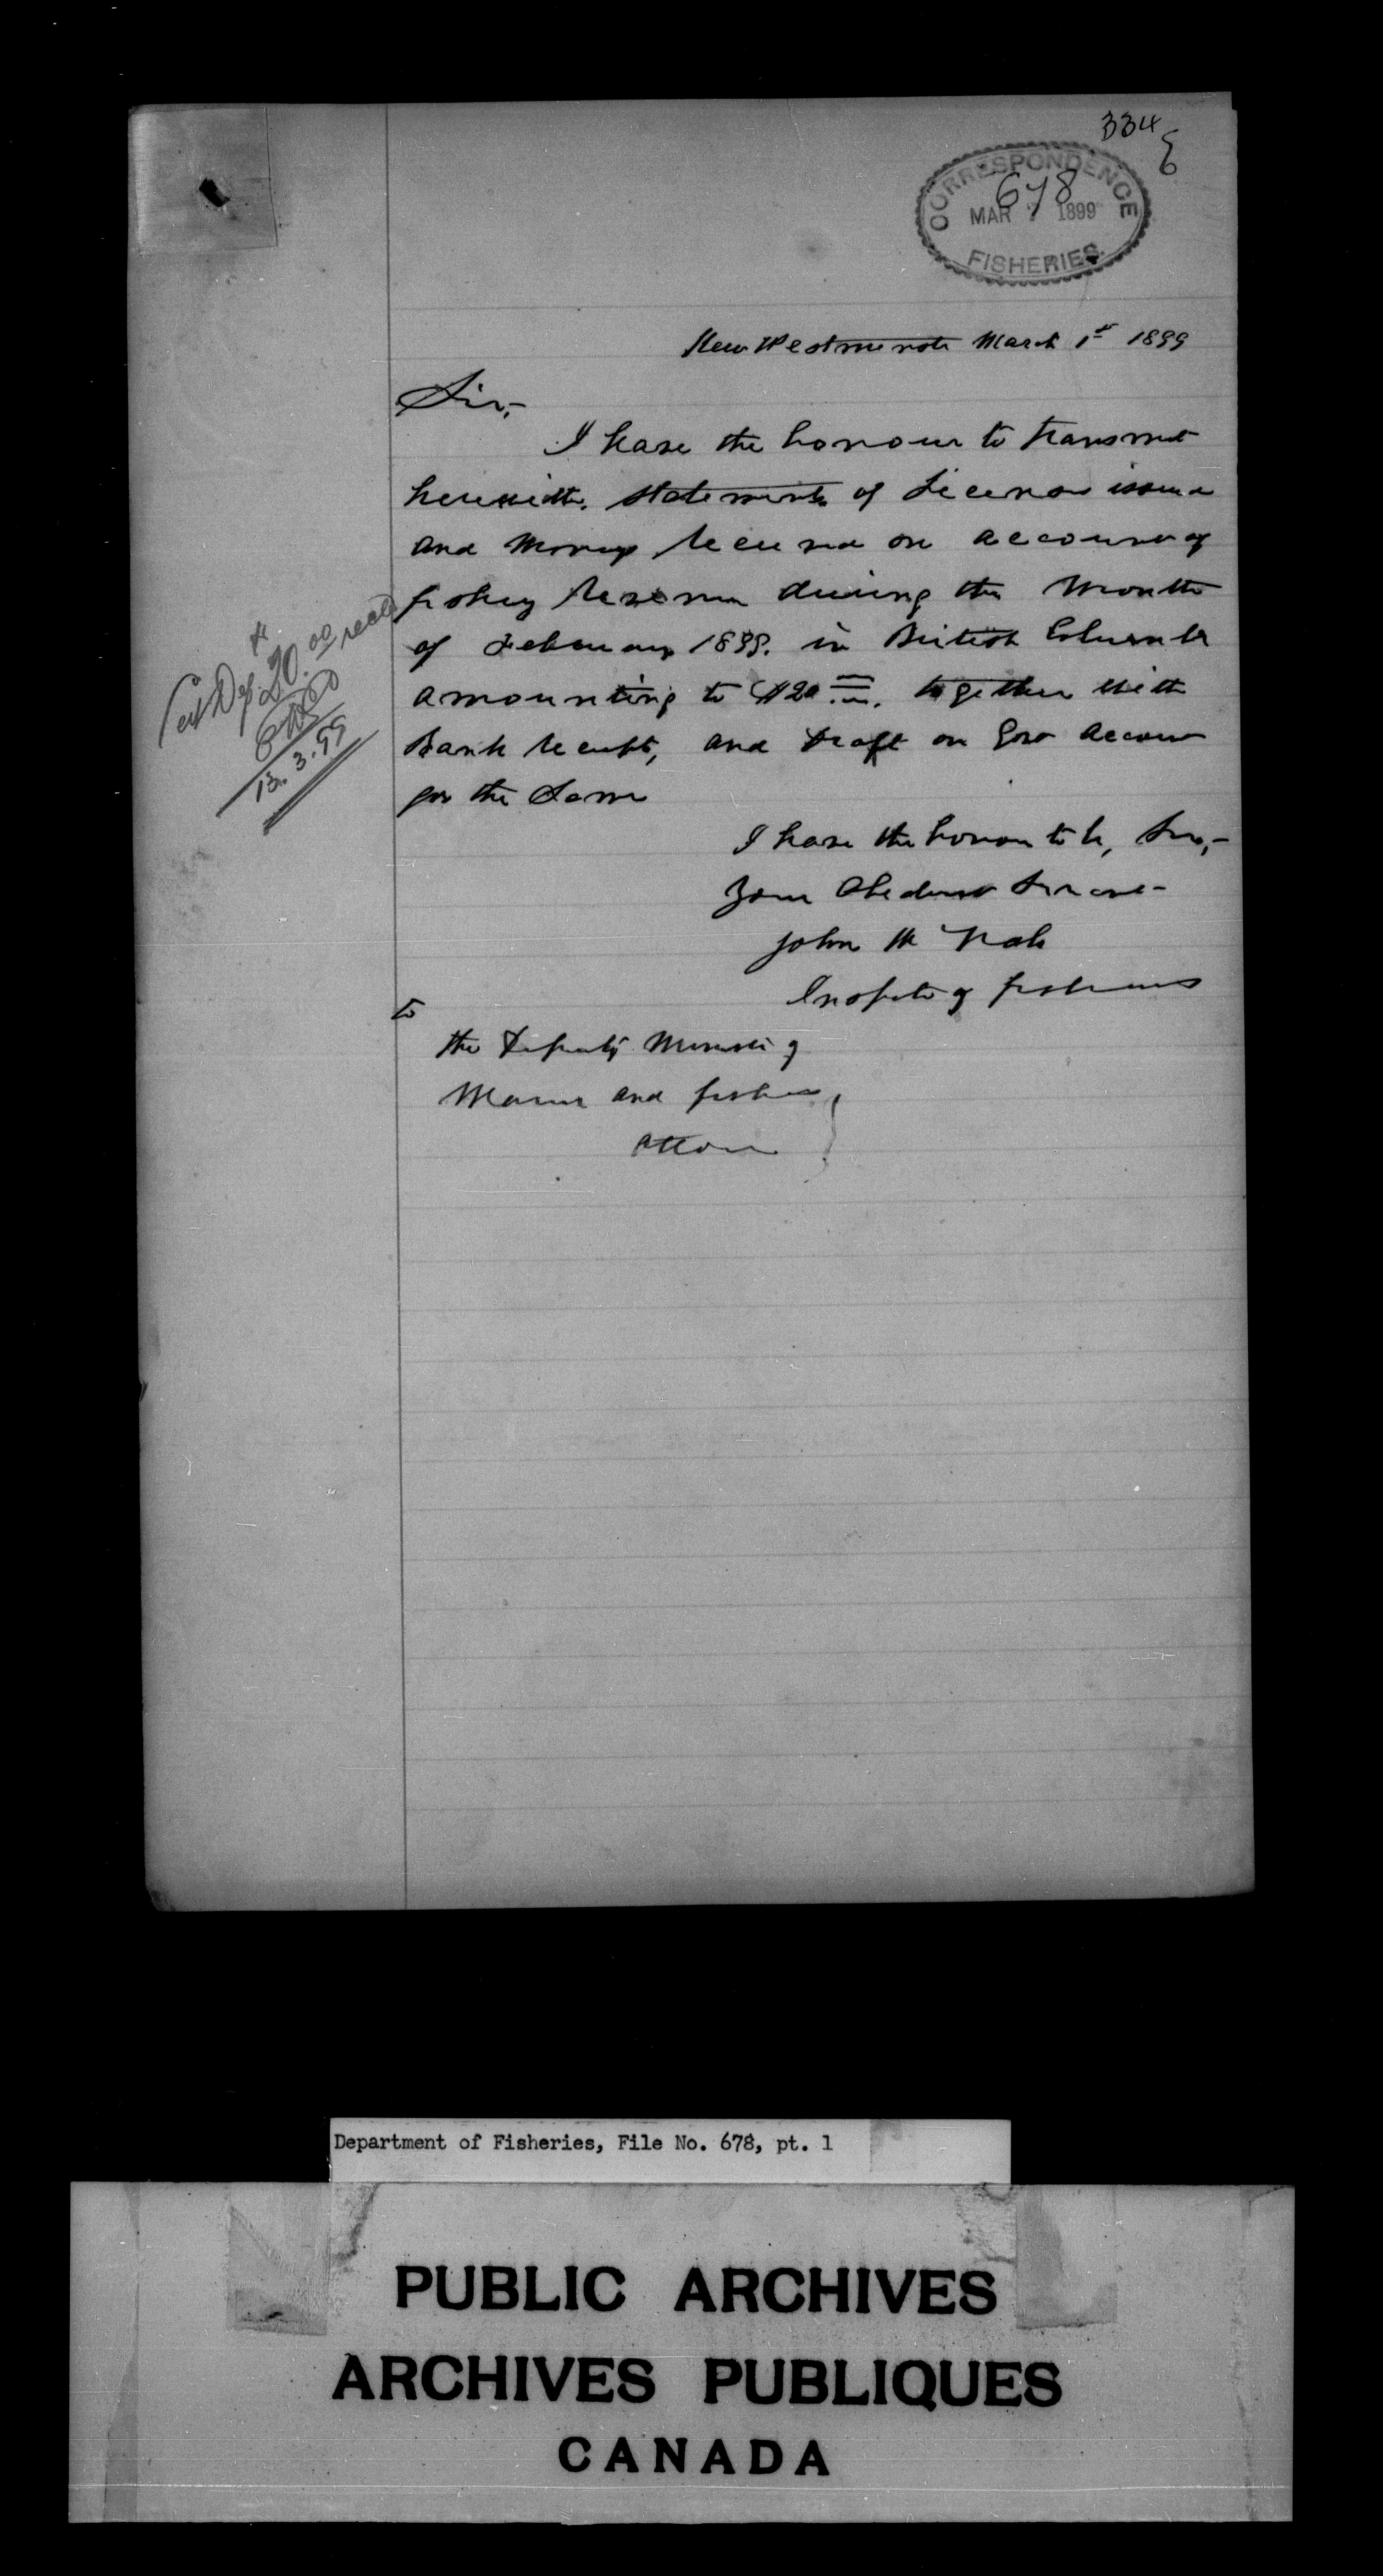 334
CORRESPONDENCE
678
MAR 1899
FISHERIES.
New Westminster March 1st 1899
Sir,-
I have the honour to transmit
herewith, statements of Licenses issued
and moneys received on account of
fishery Revenue during the Month
of February 1899. in British Columbia
amounting to $20 together with
Bank receipt, and Draft on Gov account
for the Same
I have the honour to be, Sir,-
Your Obedient Servant
John McNab
Inspector of fisheries
to
the Deputy Minister of
Marine and fisheries
Ottawa
Cert Dep $20.00 recd
13.3.99
Department of Fisheries, File No. 678, pt. 1
PUBLIC ARCHIVES
ARCHIVES PUBLIQUES
CANADA